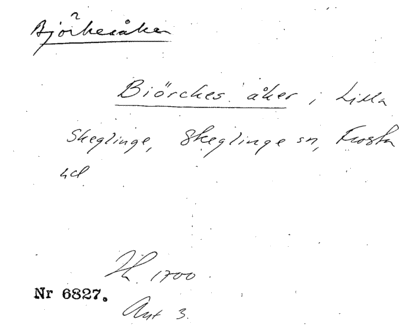 ?
Björkesåker
Biörckes åker, Lilla
Skeglinge, Skeglinge sn, Frosta
hd
1700.
Nr 6827.
Ant 3.